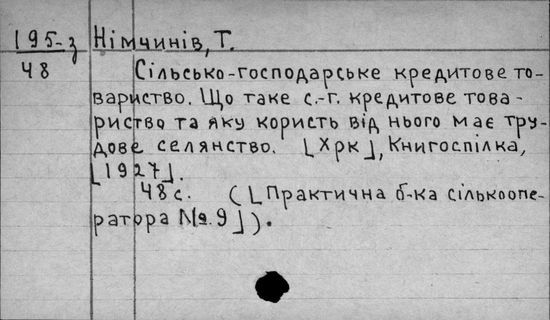 195-з Німчинів, Т.
48
Сільсько-господарське кредитове то-
вариство. Що таке с.-г. кредитове това-
риство та яку користь від нього має тру-
дове селянство. ⌊Хрк⌋, Книгоспілка,
⌊1927⌋.
48 с. (⌊Практична б-ка сількоопе-
ратора №9⌋).